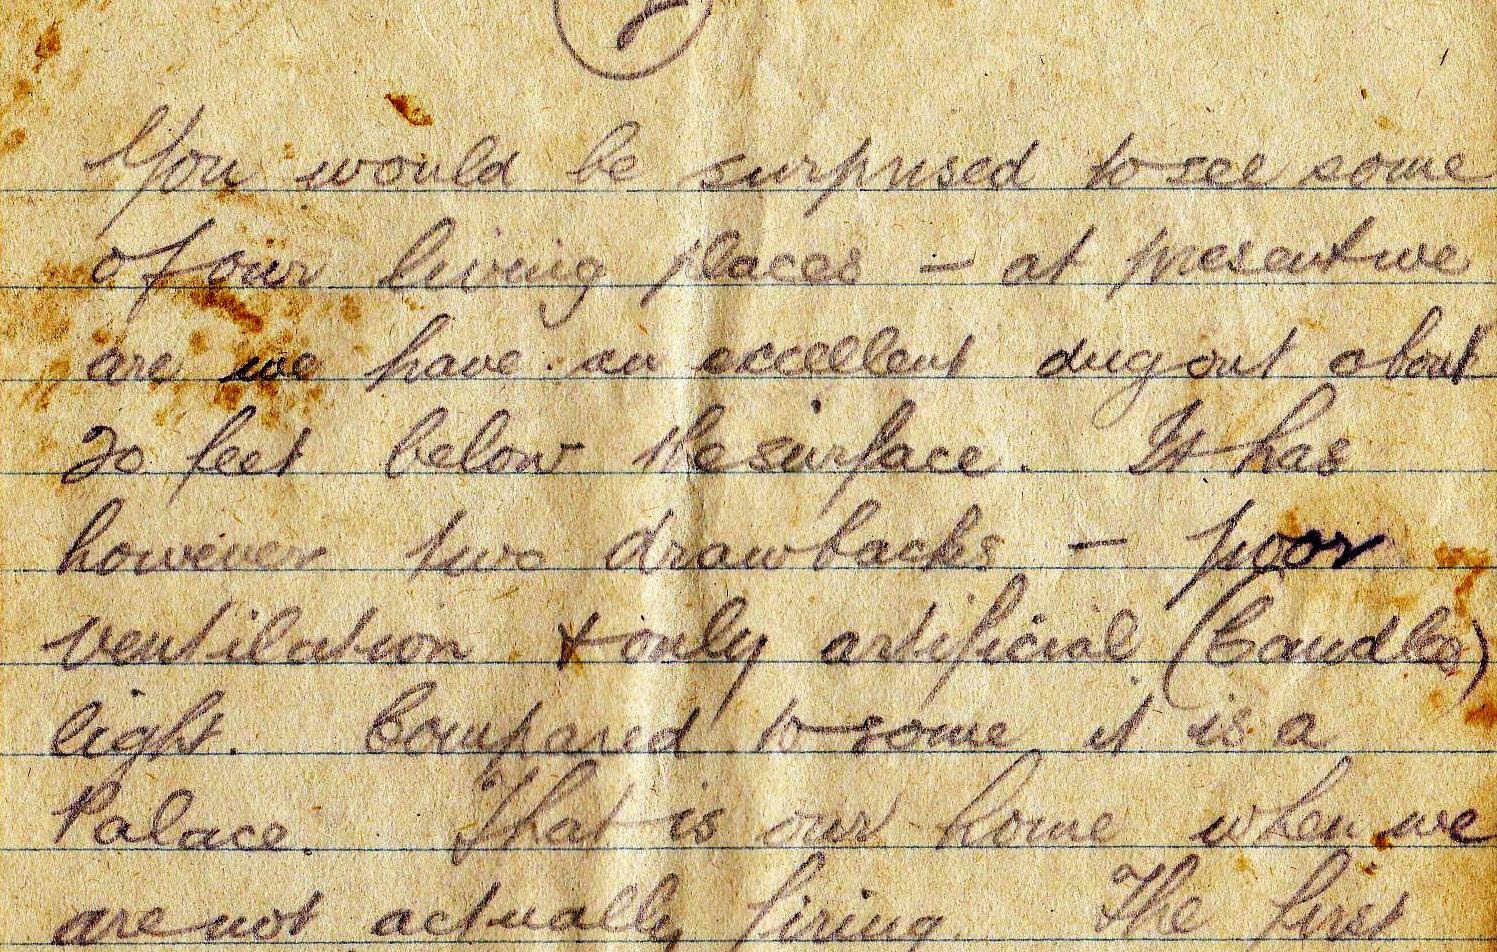 You would be surprised to see some
of our living places – at present we
are we have an excellent dugout about
20 feet below the surface. It has
however two drawbacks – poor
ventilation & only artificial (Candle)
light. Compared to some it is a
Palace. That is our home when we
are not actually firing. The first